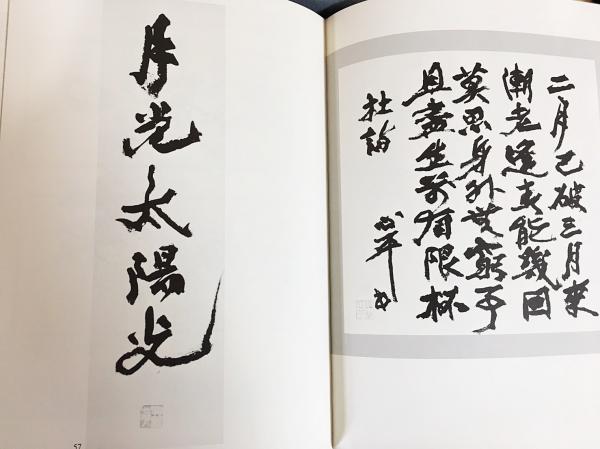 二月已破三月来
漸老逢春能幾回
莫思身外無窮事
且盡生前有限杯
心平
月光太陽光
57